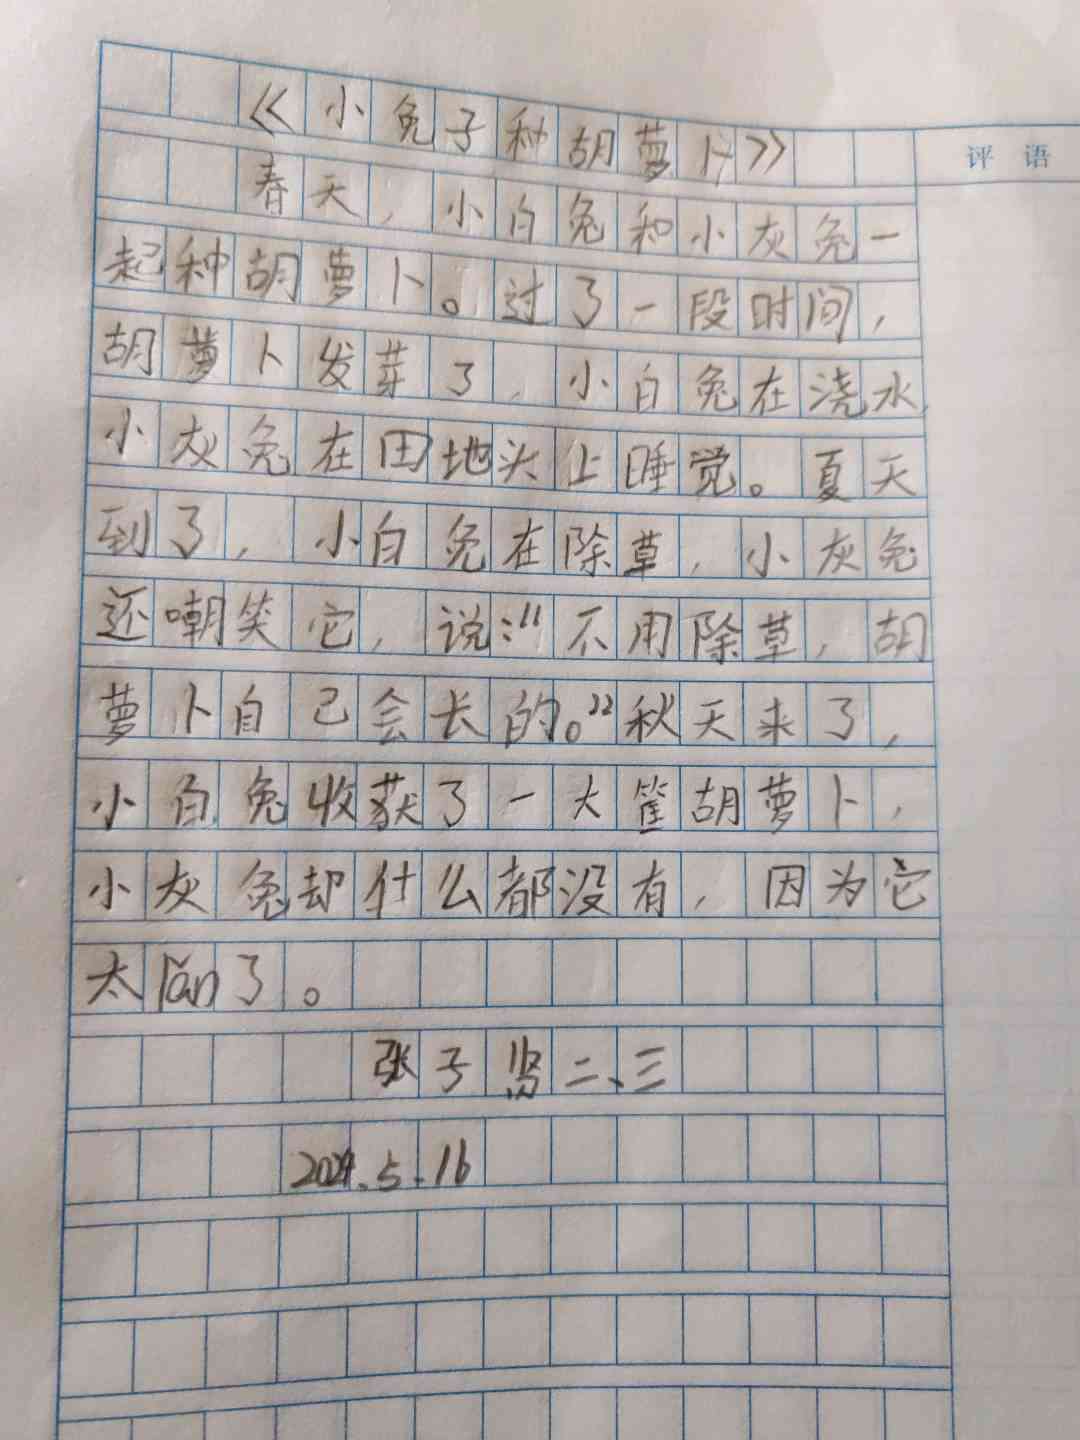 《小兔子种胡萝卜》
评语
春天，小白兔和小灰兔一
起种胡萝卜。过了一段时间，
胡萝卜发芽了，小白兔在浇水，
小灰兔在田地头上睡觉。夏天
到了，小白兔在除草，小灰兔
还嘲笑它，说：“不用除草，胡
萝卜自己会长的。”秋天来了，
小白兔收获了一大筐胡萝卜，
小灰兔却什么都没有，因为它
太lǎn了。
张子贤二、三
2024.5.16